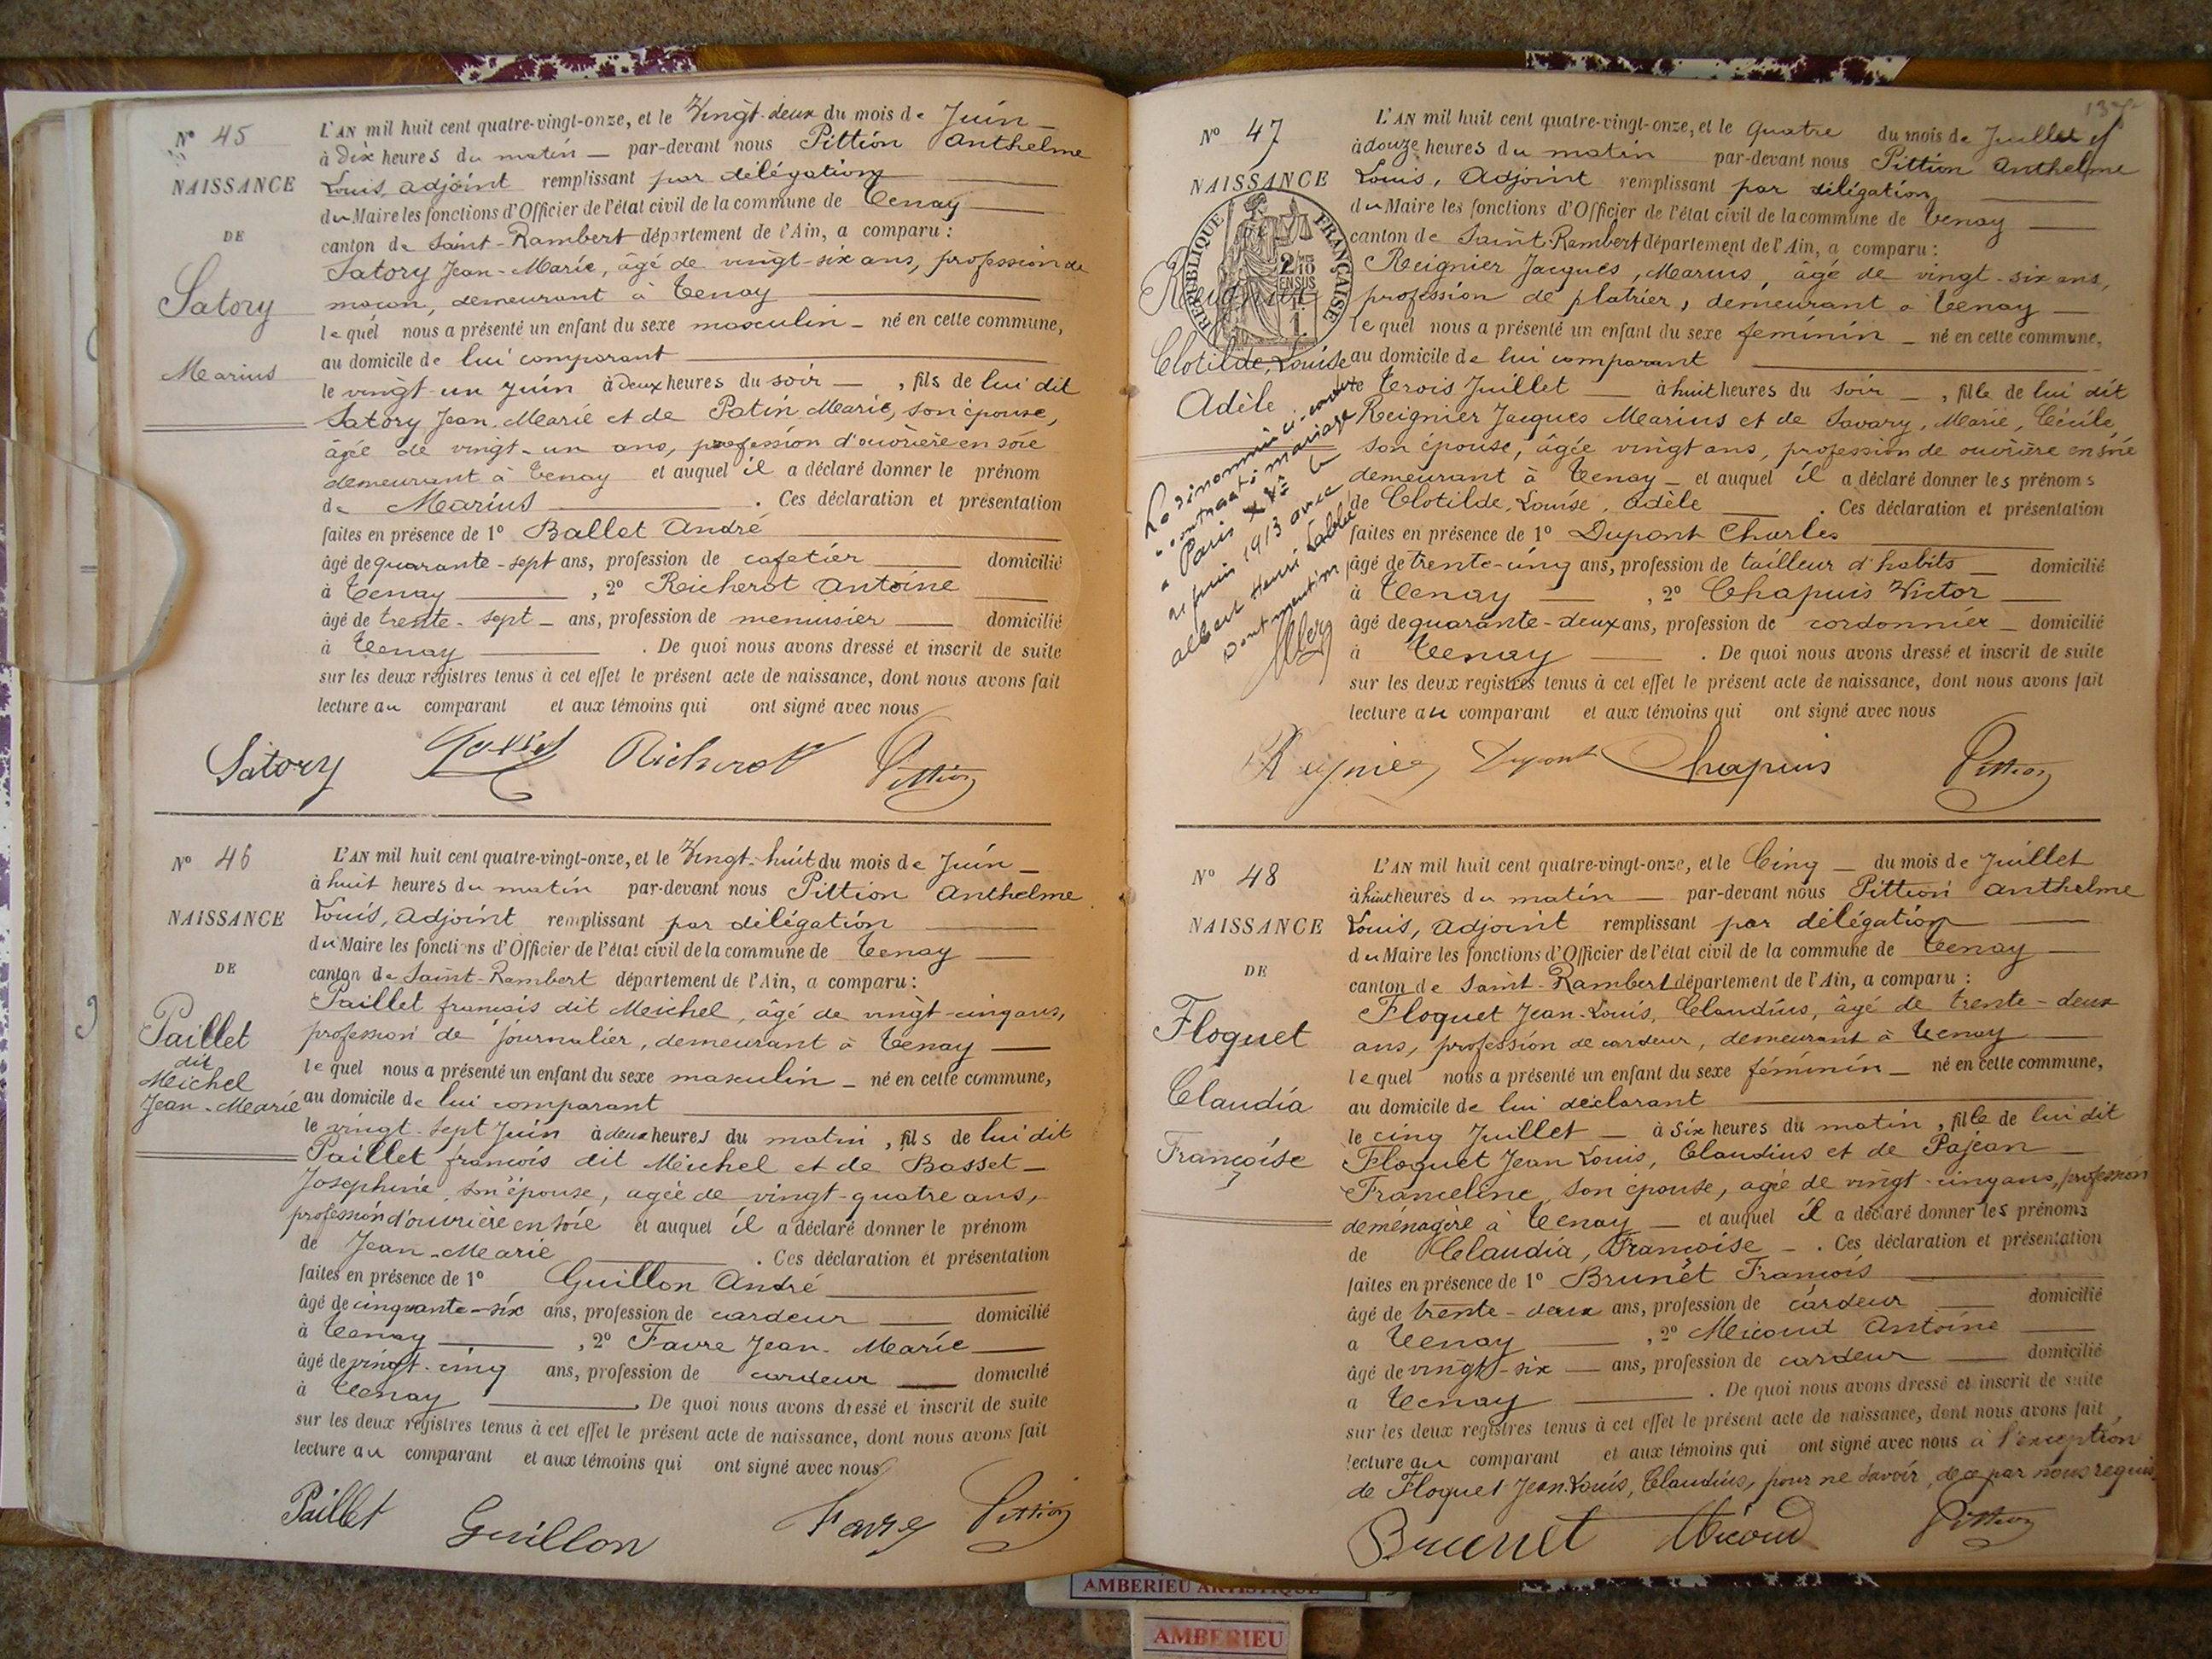 Nº 45
NAISSANCE
DE
Satory
Marius
L'AN mil huit cent quatre-vingt-onze, et le Vingt-deux du mois de Juin
à Dix heures du matin par-devant nous Pittion Anthelme
Louis, adjoint remplissant par délégation
du Maire les fonctions d'Officier de l'état civil de la commune de Tenay
canton de Saint-Rambert département de l'Ain, a comparu :
Satory Jean-Marie, âgé de vingt-six ans, profession de
maçon, demeurant à Tenay
lequel nous a présenté un enfant du sexe masculin né en cette commune,
au domicile de lui comparant
le vingt-un Juin à deux heures du soir , fils de lui dit
Satory Jean-Marie et de Patin Marie, son épouse,
âgée de vingt-un ans, profession d'ouvrière en soie
demeurant à Tenay et auquel il a déclaré donner le prénom
de Marius . Ces déclaration et présentation
faites en présence de 1º Ballet André
âgé de quarante-sept ans, profession de cafetier domicilié
à Tenay , 2º Richerot Antoine
âgé de trente-sept ans, profession de menuisier domicilié
à Tenay . De quoi nous avons dressé et inscrit de suite
sur les deux registres tenus à cet effet le présent acte de naissance, dont nous avons fait
lecture au comparant et aux témoins qui ont signé avec nous
Satory Richerot Pittion
Nº 46
NAISSANCE
DE
Paillet
dit
Michel
Jean-Marie
L'AN mil huit cent quatre-vingt-onze, et le Vingt-huit du mois de Juin
à huit heures du matin par-devant nous Pittion Anthelme
Louis, adjoint remplissant par délégation
du Maire les fonctions d'Officier de l'état civil de la commune de Tenay
canton de Saint-Rambert département de l'Ain, a comparu :
Paillet françois dit Meichel, âgé de vingt-cinq ans,
profession de journalier, demeurant à Tenay
lequel nous a présenté un enfant du sexe masculin né en cette commune,
au domicile de lui comparant
le vingt-sept Juin à deux heures du matin , fils de lui dit
Paillet françois dit Meichel et de Basset
Josephine, son épouse, agée de vingt-quatre ans,
profession d'ouvrière en soie et auquel il a déclaré donner le prénom
de Jean-Marie . Ces déclaration et présentation
faites en présence de 1º Guillon André
âgé de cinquante-six ans, profession de cardeur domicilié
à Tenay , 2º Favre Jean-Marie
âgé de vingt-cinq ans, profession de cardeur domicilié
à Tenay . De quoi nous avons dressé et inscrit de suite
sur les deux registres tenus à cet effet le présent acte de naissance, dont nous avons fait
lecture au comparant et aux témoins qui ont signé avec nous
Paillet Guillon Favre Pittion
137
Nº 47
NAISSANCE
RÉPUBLIQUE FRANÇAISE
2/10 EN SUS
Reignier
Clotilde, Louise
Adèle
La dénommée ci-contre
a contracté mariage
à Paris XVe le
juin 1913 avec
Albert Henri
Dont mention
L'AN mil huit cent quatre-vingt-onze, et le quatre du mois de Juillet
à douze heures du matin par-devant nous Pittion Anthelme
Louis, Adjoint remplissant par délégation
du Maire les fonctions d'Officier de l'état civil de la commune de Tenay
canton de Saint-Rambert département de l'Ain, a comparu :
Reignier Jacques, Marius, âgé de vingt-six ans,
profession de platrier, demeurant à Tenay
lequel nous a présenté un enfant du sexe feminin né en cette commune,
au domicile de lui comparant
le trois Juillet à huit heures du soir , fille de lui dit
Reignier Jacques Marius et de Savary, Marie, Cécile,
son épouse, âgée vingt ans, profession de ouvrière en soie
demeurant à Tenay et auquel il a déclaré donner les prénoms
de Clotilde, Louise, Adèle . Ces déclaration et présentation
faites en présence de 1º Dupont Charles
âgé de trente-cinq ans, profession de tailleur d'habits domicilié
à Tenay , 2º Chapuis Victor
âgé de quarante-deux ans, profession de cordonnier domicilié
à Tenay . De quoi nous avons dressé et inscrit de suite
sur les deux registres tenus à cet effet le présent acte de naissance, dont nous avons fait
lecture au comparant et aux témoins qui ont signé avec nous
Reignier Dupont Chapuis Pittion
Nº 48
NAISSANCE
DE
Floquet
Claudia
Françoise
L'AN mil huit cent quatre-vingt-onze, et le Cinq du mois de Juillet
à huit heures du matin par-devant nous Pittion Anthelme
Louis, adjoint remplissant par délégation
du Maire les fonctions d'Officier de l'état civil de la commune de Tenay
canton de Saint-Rambert département de l'Ain, a comparu :
Floquet Jean-Louis, Claudius, âgé de trente-deux
ans, profession de cardeur, demeurant à Tenay
lequel nous a présenté un enfant du sexe féminin né en cette commune,
au domicile de lui déclarant
le cinq Juillet à Six heures du matin , fille de lui dit
Floquet Jean Louis, Claudius et de Pajean
Franceline, son épouse, agée de vingt-cinq ans, profession
de ménagère à Tenay et auquel il a déclaré donner les prénoms
de Claudia, Françoise . Ces déclaration et présentation
faites en présence de 1º Brunet François
âgé de trente-deux ans, profession de cardeur domicilié
à Tenay , 2º Micoud Antoine
âgé de vingt-six ans, profession de cardeur domicilié
à Tenay . De quoi nous avons dressé et inscrit de suite
sur les deux registres tenus à cet effet le présent acte de naissance, dont nous avons fait
lecture au comparant et aux témoins qui ont signé avec nous à l'exception
de Floquet Jean-Louis, Claudius, pour ne savoir, de ce par nous requis
Brunet Micoud Pittion
AMBERIEU ARTISTIQUE
AMBERIEU